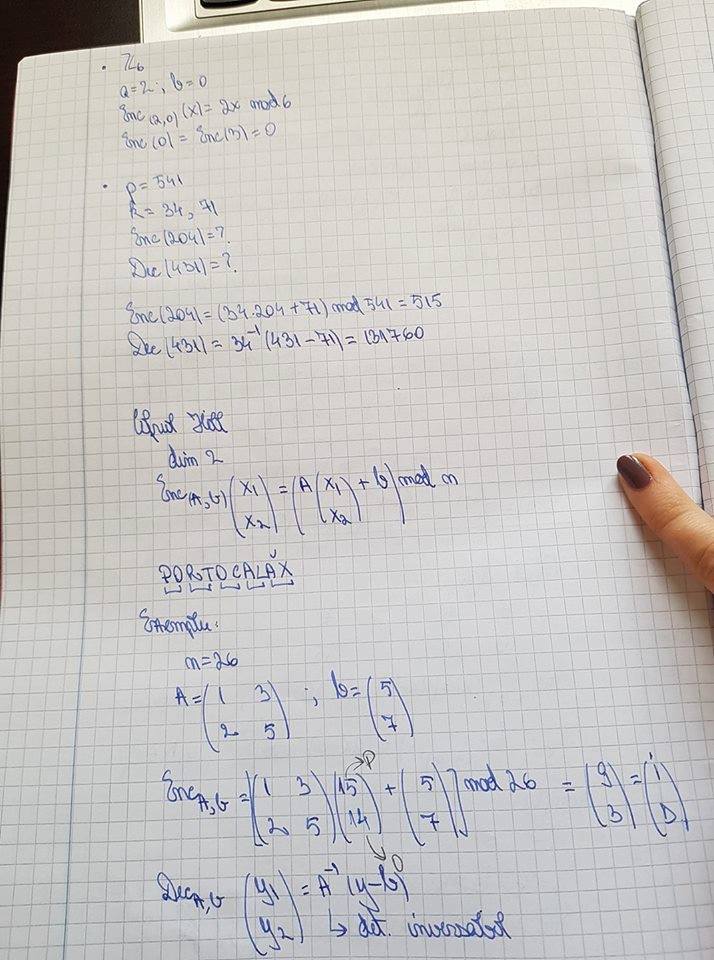 • ℤ₆
a=2 ; b=0
Enc₍₂,₀₎(x) = 2x mod 6
Enc(0) = Enc(3) = 0
• p = 541
k = 34, 71
Enc(204) = ?
Dec(431) = ?
Enc(204) = (34·204 + 71) mod 541 = 515
Dec(431) = 34⁻¹(431 - 71) = 131760
Cifrul Hill
dim 2
Enc(A,b) (x₁ x₂) = (A (x₁ x₂) + b) mod n
PORTOCALĂX
Exemplu:
n=26
A = (1 3 ; b = (5
2 5) 7)
P
Enc A,b = [(1 3 (15 + (5 ] mod 26 = (9 = (i
2 5) 14) 7) 3) D)
O
Dec A,b (y₁ = A⁻¹ (y-b)
y₂) ↳ det. inversabil